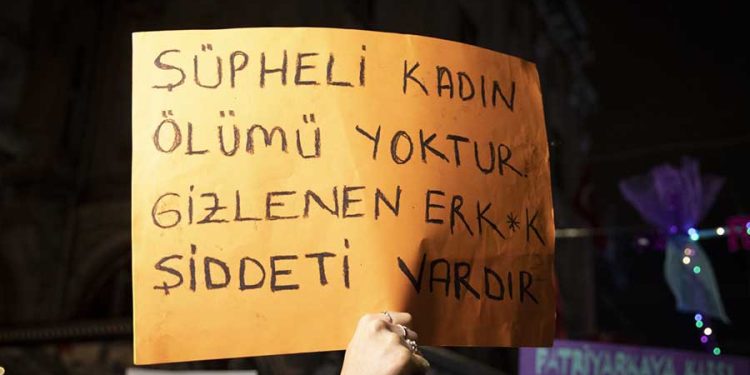 ŞÜPHELİ KADIN
ÖLÜMÜ YOKTUR.
GİZLENEN ERK*K
ŞİDDETİ VARDIR
PATRİYARKAYA KARŞI